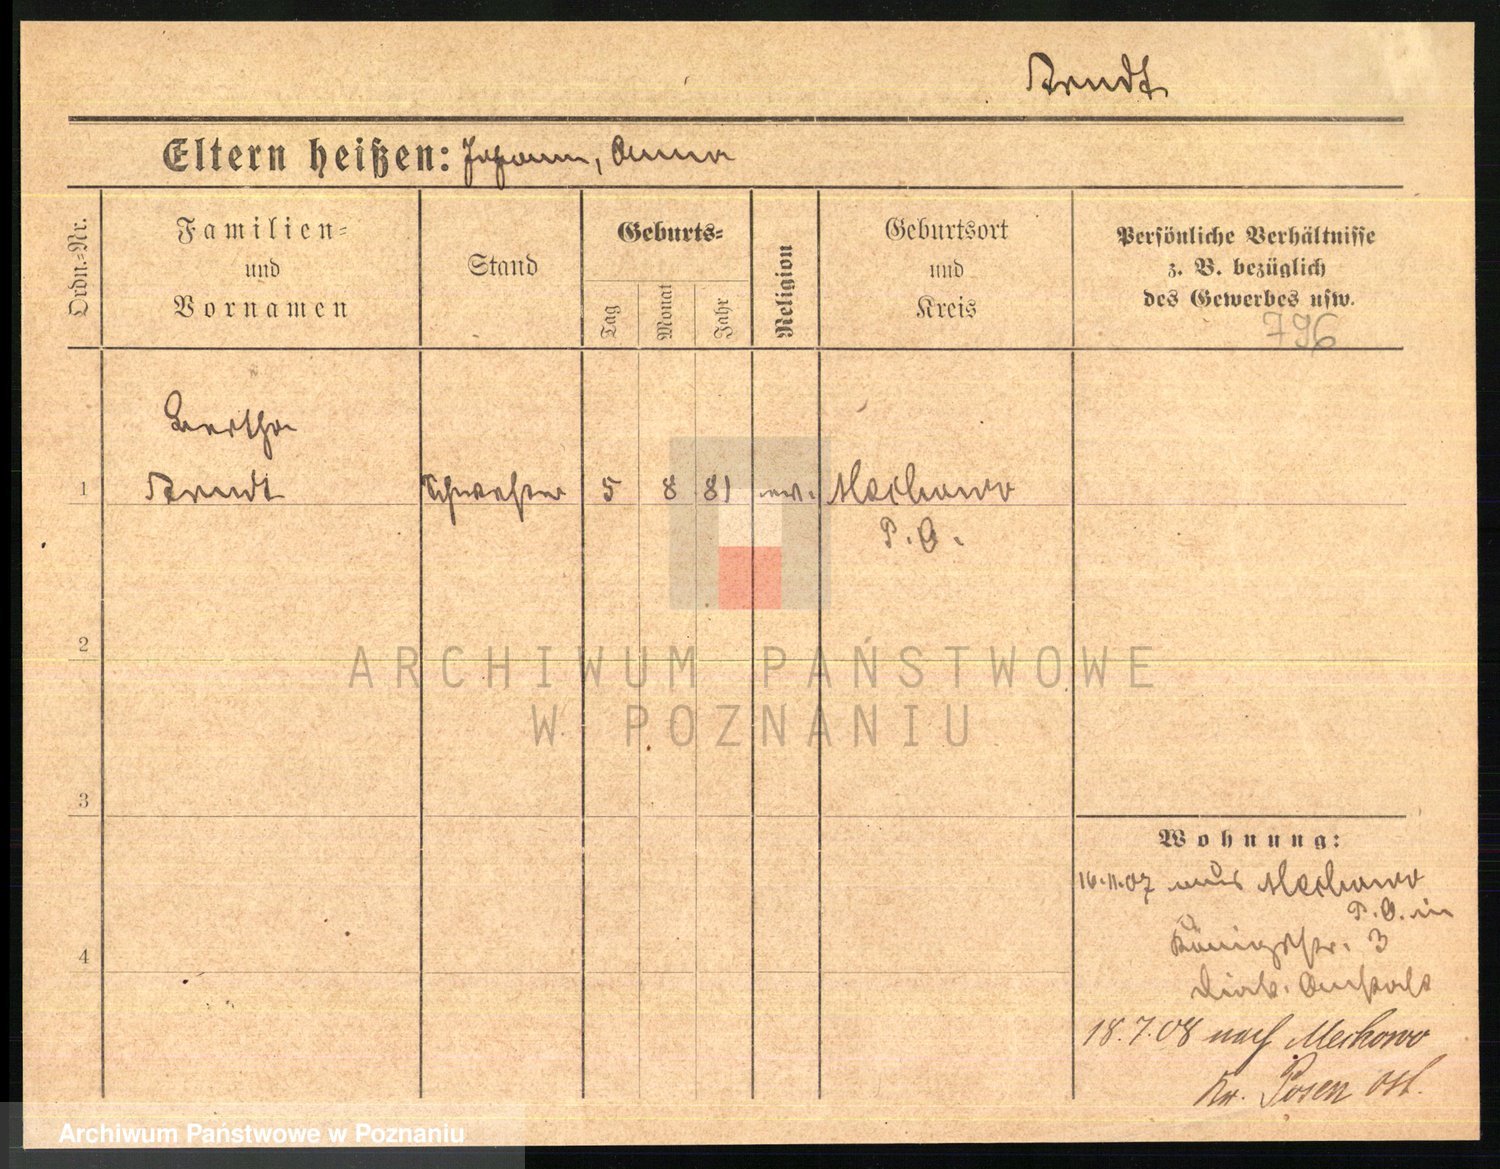 Arndt
Eltern heißen: Johann, Anna
Ordn.-Nr.
Familien-
und
Vornamen
Stand
Geburts-
Tag
Monat
Jahr
Religion
Geburtsort
und
Kreis
Persönliche Verhältnisse
z. B. bezüglich
des Gewerbes usw.
796
Bertha
1 Arndt Schwester 5 8 81 ev. Mechowo
P. O.
2
ARCHIWUM PAŃSTWOWE
W POZNANIU
3
Wohnung:
16.11.07 aus Mechowo
P. O. in
Königstr. 3
4
Diak. Anstalt
18.7.08 nach Mechowo
Kr. Posen Ost.
Archiwum Państwowe w Poznaniu